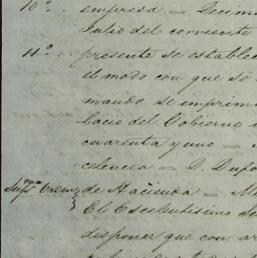 10º. empresa = Decim
Julio del corriente
11º. presente se establec
el modo con que se
mando se imprim
lacio del Gobierno
cuarenta y uno =
celencia = D. Dupo
de Hacienda = M
El Escelentisimo Se
disponer que con ar